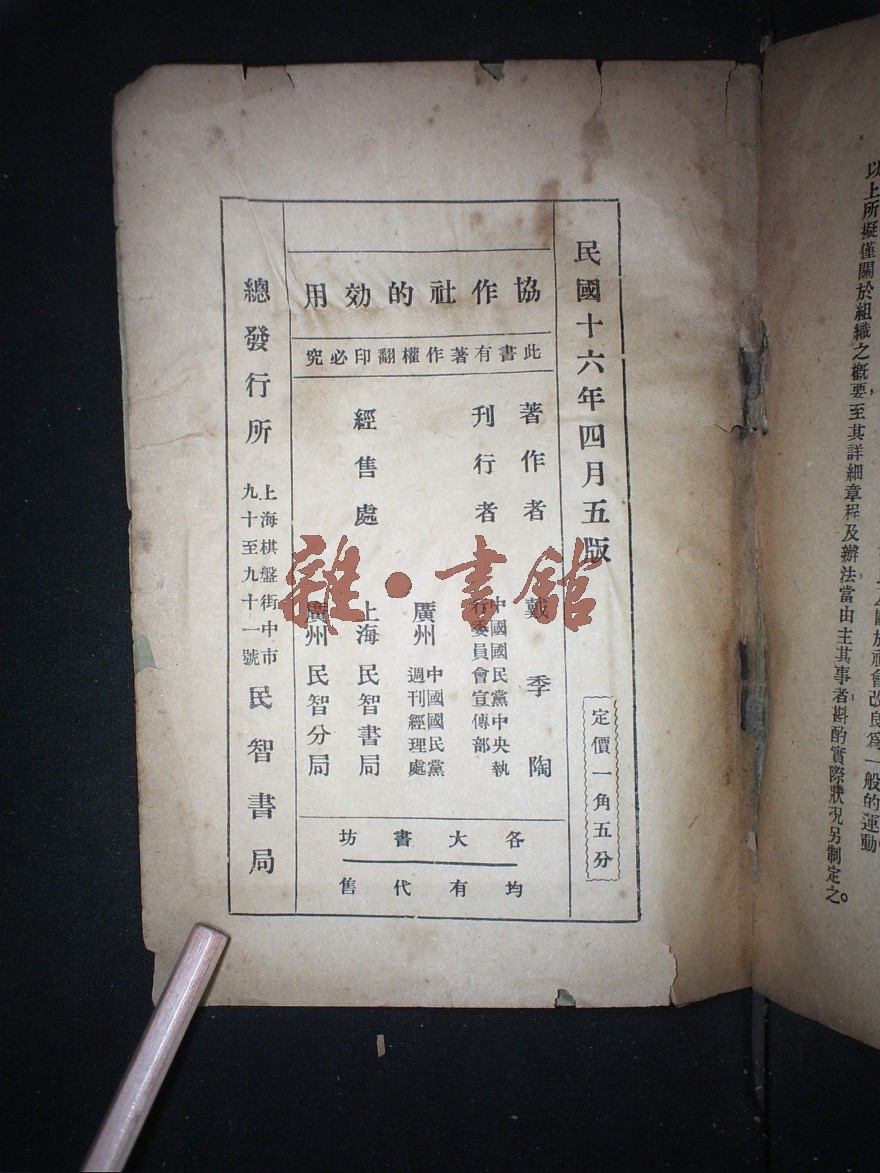 以上所擬僅關於組織之概要至其詳細章程及辦法當由主其事者斟酌實際狀況另制定之。
民國十六年四月五版
定價一角五分
協作社的効用
此書有著作權翻印必究
著作者 戴季陶
刊行者 中國國民黨中央執行委員會宣傳部
經售處
廣州 中國國民黨週刊經理處
上海 民智書局
廣州 民智分局
各大書坊
均有代售
總發行所 上海棋盤街中市九十至九十一號 民智書局
雜·書館